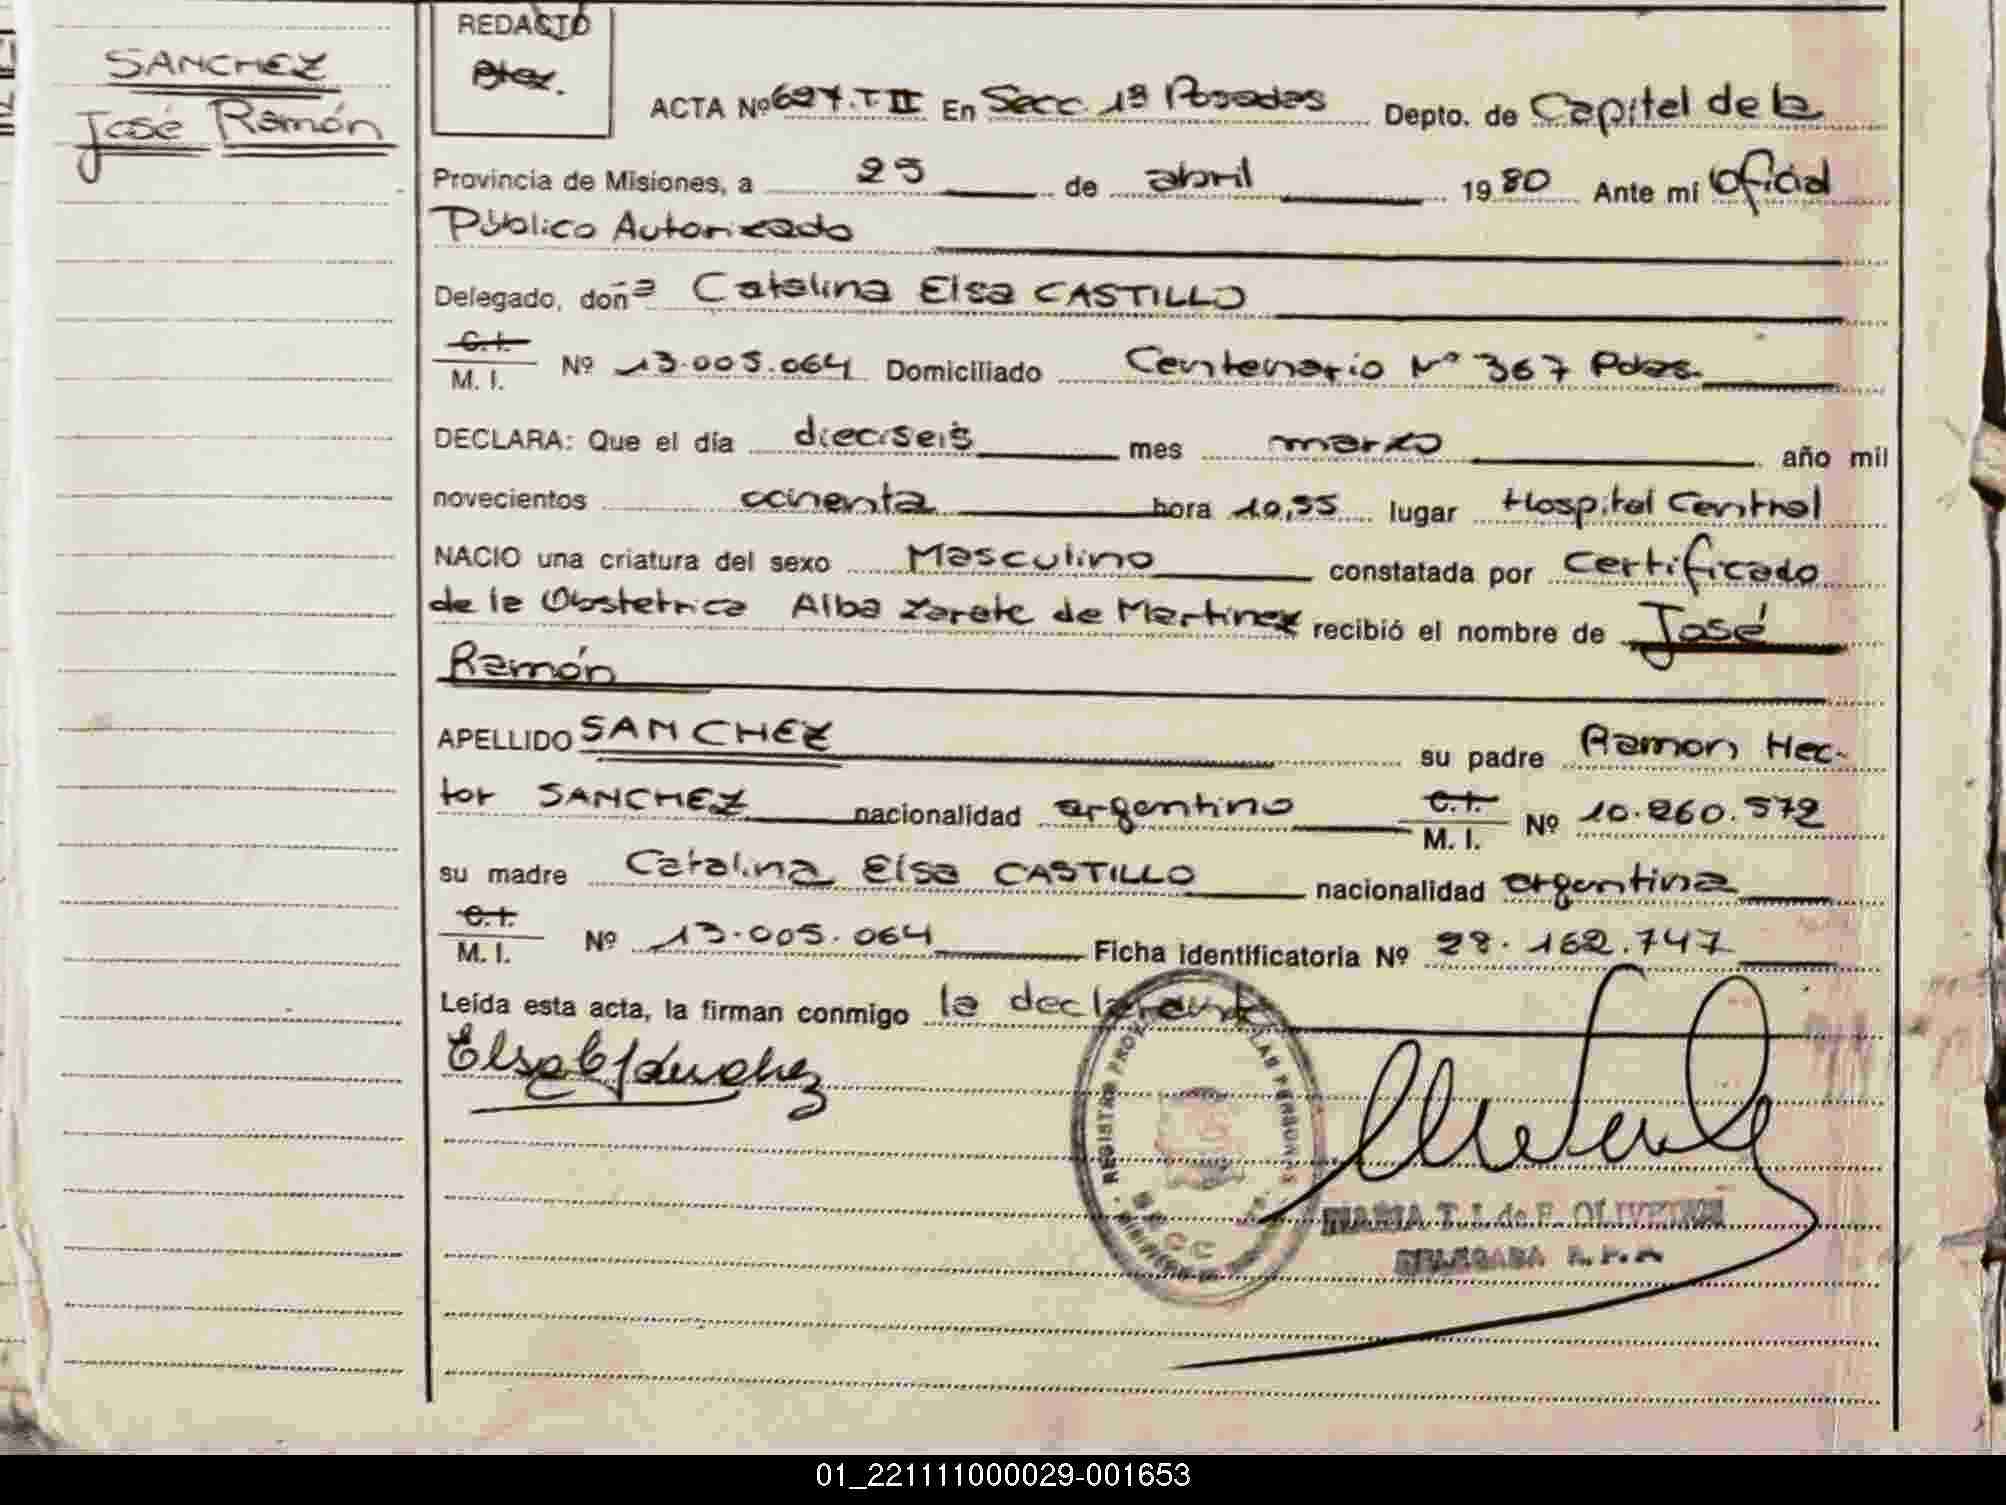 SANCHEZ
José Ramón
REDACTO
ACTA Nº 697.T II En Secc. 1ª Posadas Depto. de Capital de la
Provincia de Misiones, a 25 de abril 1980 Ante mí Oficial
Público Autorizado
Delegado, doñª Catalina Elsa CASTILLO
C. I.
M. I. Nº 13.005.064 Domiciliado Centenario Nº 367 Pdas.
DECLARA: Que el día dieciseis mes marzo año mil
novecientos ochenta hora 10,55 lugar Hospital Central
NACIO una criatura del sexo Masculino constatada por Certificado
de la Obstetrica Alba Zarate de Martinez recibió el nombre de José
Ramón
APELLIDO SANCHEZ su padre Ramon Hec-
tor SANCHEZ nacionalidad argentino C. I.
M. I. Nº 10.260.572
su madre Catalina Elsa CASTILLO nacionalidad argentina
C. I.
M. I. Nº 13.005.064 Ficha identificatoria Nº 28.162.747
Leída esta acta, la firman conmigo la declarante
Elsa C Sánchez
REGISTRO PROV. LAS PERSONAS
MARIA T. J. de F. OLIVEIRA
DELEGADA R. P. A
01_221111000029-001653